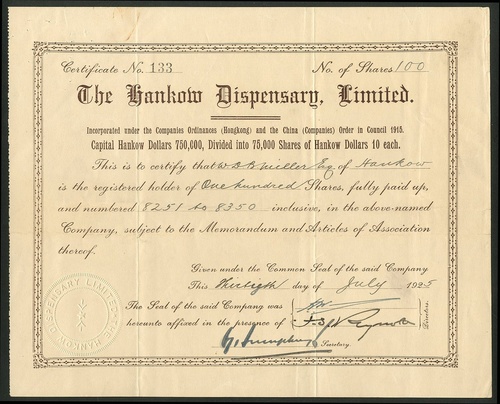 Certificate No. 133 No. of Shares 100
The Hankow Dispensary, Limited.
Incorporated under the Companies Ordinances (Hongkong) and the China (Companies) Order in Council 1915.
Capital Hankow Dollars 750,000, Divided into 75,000 Shares of Hankow Dollars 10 each.
This is to certify that W B B Miller Esq of Hankow
is the registered holder of One hundred Shares, fully paid up,
and numbered 8251 to 8350 inclusive, in the above-named
Company, subject to the Memorandum and Articles of Association
thereof.
Given under the Common Seal of the said Company
This Thirtieth day of July 1925
The Seal of the said Company was
hereunto affixed in the presence of
Directors.
Secretary.